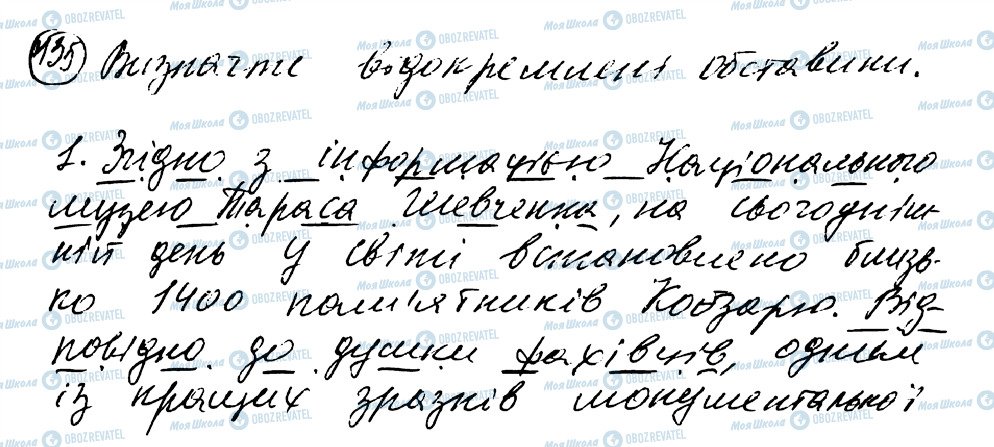 435 Визначте відокремлені обставини.
1. Згідно з інформацією Національного
музею Тараса Шевченка, на сьогодніш-
ній день у світі встановлено близь-
ко 1400 пам'ятників Кобзарю. Від-
повідно до думки фахівців, одним
із кращих зразків монументальної